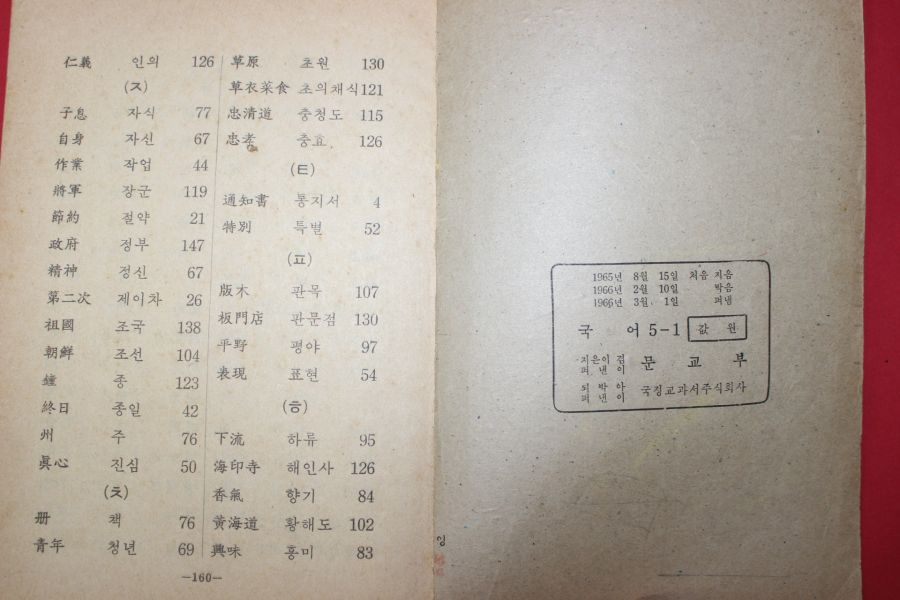 仁義 인의 126
(ㅈ)
子息 자식 77
自身 자신 67
作業 작업 44
將軍 장군 119
節約 절약 21
政府 정부 147
精神 정신 67
第二次 제이차 26
祖國 조국 138
朝鮮 조선 104
鐘 종 123
終日 종일 42
州 주 76
眞心 진심 50
(ㅊ)
册 책 76
青年 청년 69
草原 초원 130
草衣菜食 초의채식 121
忠清道 충청도 115
忠孝 충효 126
(ㅌ)
通知書 통지서 4
特別 특별 52
(ㅍ)
版木 판목 107
板門店 판문점 130
平野 평야 97
表現 표현 54
(ㅎ)
下流 하류 95
海印寺 해인사 126
香氣 향기 84
黃海道 황해도 102
興味 흥미 83
—160—
1965년 8월 15일 처음 지음
1966년 2월 10일 박음
1966년 3월 1일 펴냄
국 어 5-1 값 원
지은이 겸
펴 낸 이 문 교 부
되 박 아
펴 낸 이 국정교과서주식회사